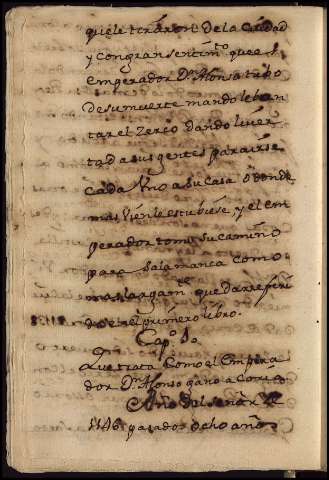 que le tiráron de la Ciudad
y con gran sentim.to que el
emperador D.n Alonso tubo
de su muerte mando leban
tar el zerco dando liver
tad a sus gentes para irse
cada uno a su casa o donde
mas bien le estubiese, y el em
perador tomo su camino
para Salamanca como
mas largam.te queda referi
do en el primero libro.
Cap.o 1.o
Que trata como el Empera
dor D.n Alonso gano a Coria
Año del señor de
1146 pasados ocho años